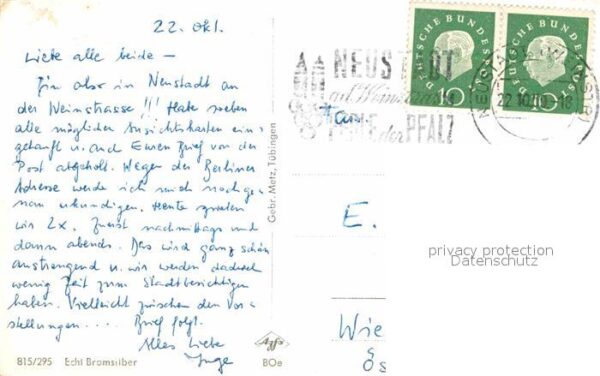 22. Okt.
Liebe alle beide –
Bin also in Neustadt an
der Weinstrasse!!! Habe soeben
alle möglichen Ansichtskarten ein-
gekauft u. auch Euren Brief von der
Post abgeholt. Wegen der Berliner
Adresse werde ich mich noch ge-
nau erkundigen. Heute spielen
wir 2x. Zuerst nachmittags und
dann abends. Das wird ganz schön
anstrengend u. wir werden dadurch
wenig Zeit zum Stadtbesichtigen
haben. Vielleicht zwischen den Vor-
stellungen.... Brief folgt.
Alles Liebe
Inge
815/295 Echt Bromsilber
Agfa
BOe
Gebr. Metz, Tübingen
NEUSTADT
a.d. Weinstraße
PERLE der PFALZ
DEUTSCHE BUNDESPOST
10
DEUTSCHE BUNDESPOST
10
22.10.60-18
Fam
E.
privacy protection
Datenschutz
Wie
Ös